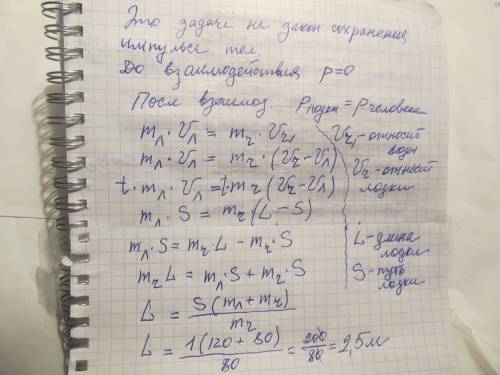 Это задача на закон сохранения
импульса тел.
До взаимодействия p=0
После взаимод. Pлодки = Pчеловека
mл · Vл = mч · Vч1
mл · Vл = mч · (Vч - Vл)
t · mл · Vл = t mч (Vч - Vл)
mл · S = mч (L - S)
mл · S = mч · L - mч · S
mч L = mл · S + mч · S
L = S (mл + mч) / mч
L = 1 (120 + 80) / 80 = 200 / 80 = 2,5 м
Vч1 - относит
воды
Vч - относит
лодки
L - длина
лодки
S - путь
лодки